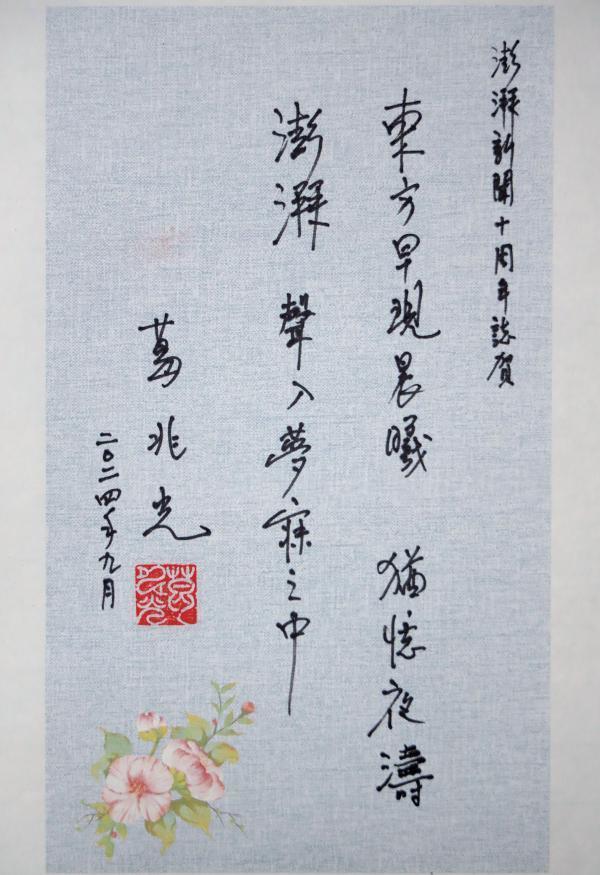 澎湃新聞十周年誌賀
東方早現晨曦 猶憶夜濤
澎湃 聲入夢寐之中
葛兆光
二〇二四年九月
葛兆光